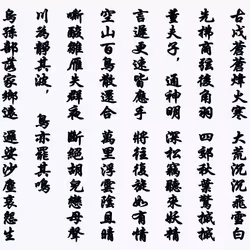 古戍蒼蒼烽火寒 大荒沉沉飛雪白
先拂商弦後角羽 四郊秋葉驚摵摵
董夫子，通神明 深松竊聽來妖精
言遲更速皆應手 將往復旋如有情
空山百鳥散還合 萬里浮雲陰且晴
嘶酸雛雁失群夜 斷絕胡兒戀母聲
川為靜其波， 鳥亦罷其鳴
烏孫部落家鄉遠 邏娑沙塵哀怨生